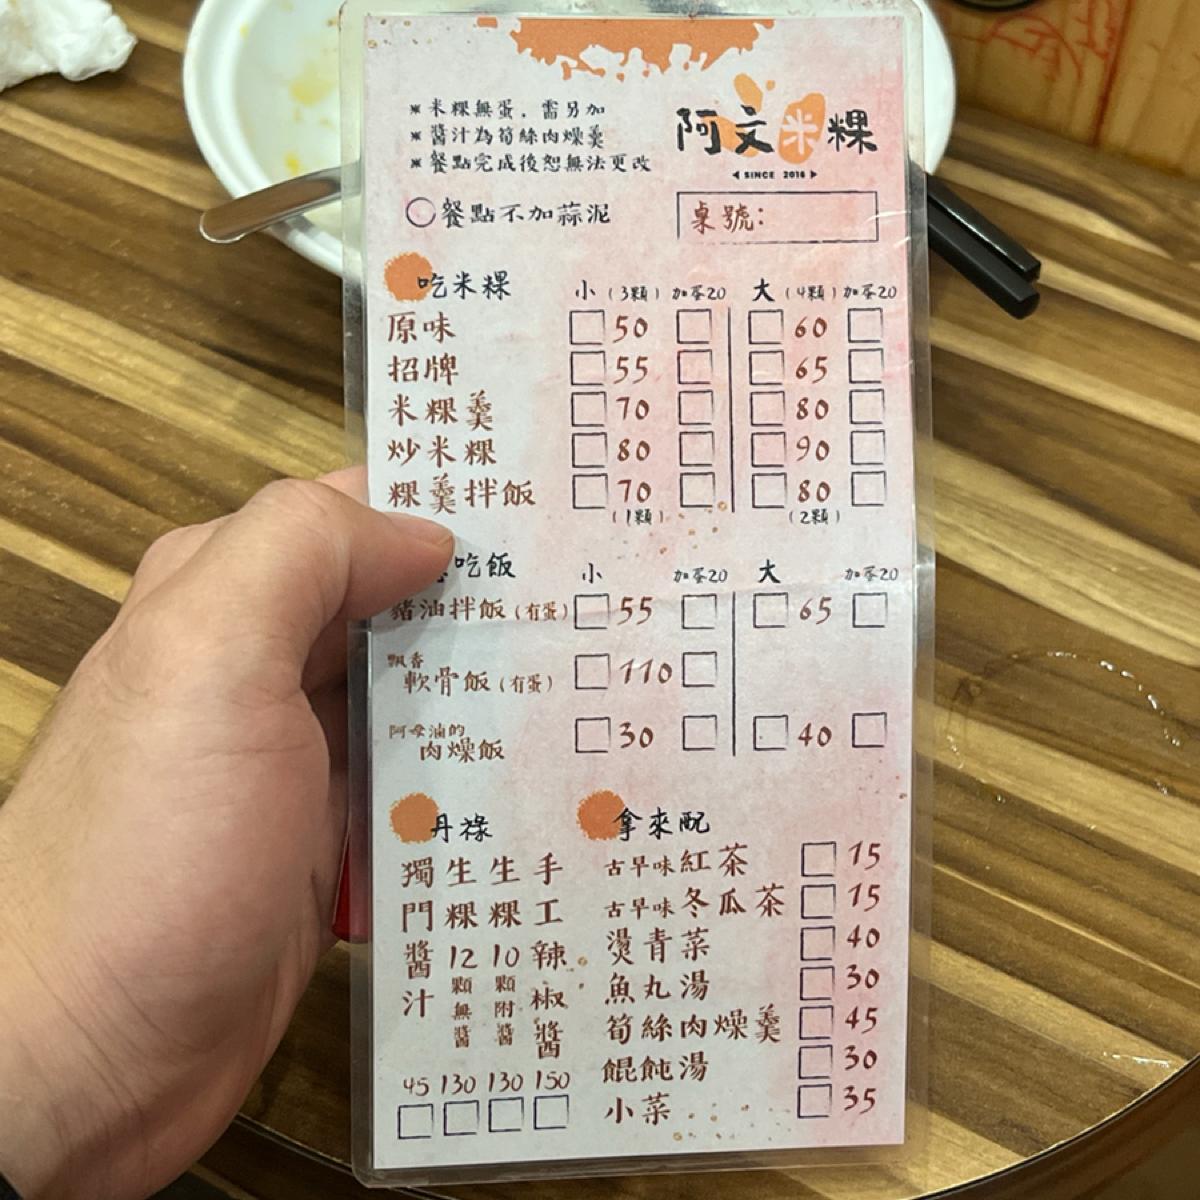 ※米粿無蛋，需另加
※醬汁為筍絲肉燥羹
※餐點完成後恕無法更改
阿文米粿
SINCE 2016
餐點不加蒜泥
桌號：
吃米粿 小（3顆） 加蛋20 大（4顆） 加蛋20
原味 50 60
招牌 55 65
米粿羹 70 80
炒米粿 80 90
粿羹拌飯 70 80
（1顆） （2顆）
吃飯 小 加蛋20 大 加蛋20
豬油拌飯（有蛋） 55 65
飄香
軟骨飯（有蛋） 110
阿母滷的
肉燥飯 30 40
丹祿
獨門醬汁 45
生粿12顆無醬 130
生粿10顆附醬 130
手工辣椒醬 150
拿來配
古早味紅茶 15
古早味冬瓜茶 15
燙青菜 40
魚丸湯 30
筍絲肉燥羹 45
餛飩湯 30
小菜 35